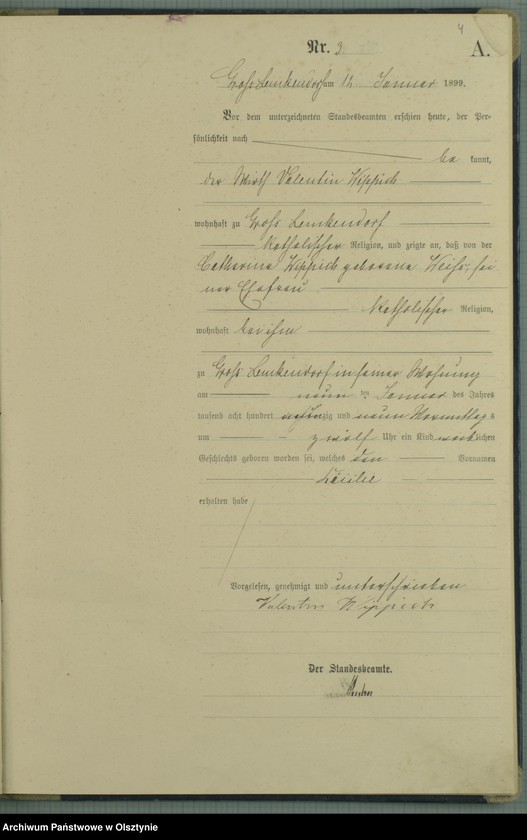 4
Nr. 3. A.
Gross Lemkendorf am 12 Januar 1899.
Vor dem unterzeichneten Standesbeamten erschien heute, der Per-
sönlichkeit nach
be kannt,
der Wirth Valentin Wippich
wohnhaft zu Gross Lemkendorf
katholischer Religion, und zeigte an, daß von der
Catharina Wippich geborene Weiss, sei
ner Ehefrau
katholischer Religion,
wohnhaft bei ihm
zu Gross Lemkendorf in seiner Wohnung
am neun ten Januar des Jahres
tausend acht hundert neunzig und neun Vormittags
um zwölf Uhr ein Kind weiblichen
Geschlechts geboren worden sei, welches den Vornamen
Cäcilie
erhalten habe
Vorgelesen, genehmigt und unterschrieben
Valentin Wippich
Der Standesbeamte.
Archiwum Państwowe w Olsztynie